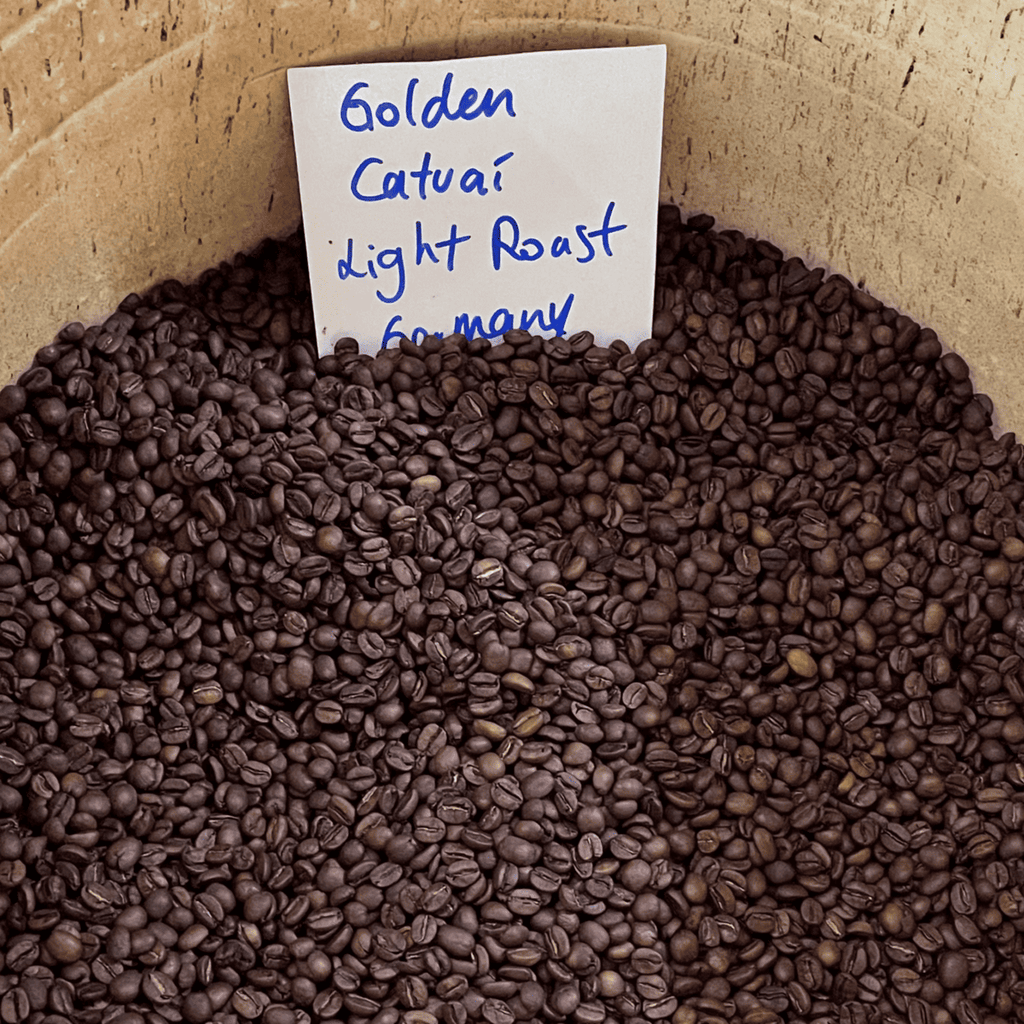 Golden
Catuaí
Light Roast
Germany